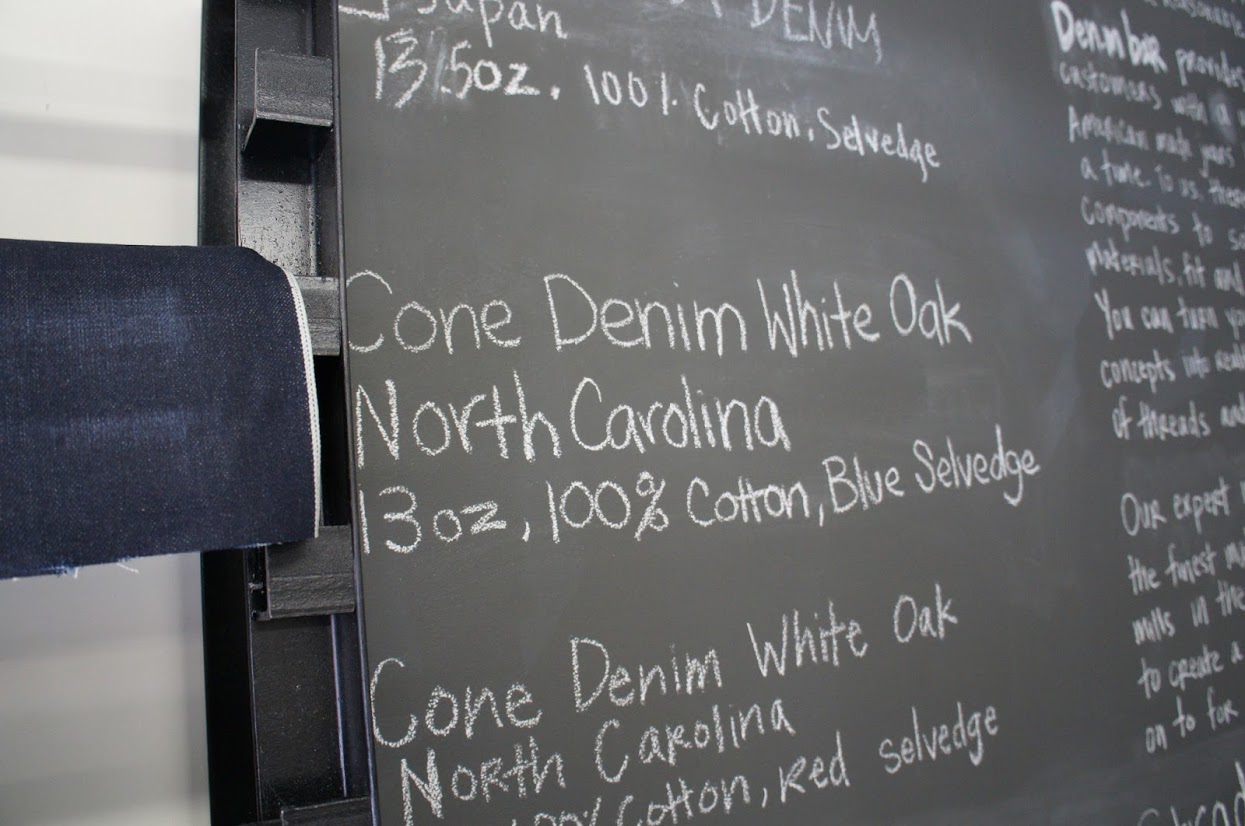 Japan DENIM
13.5oz. 100% Cotton, Selvedge
Cone Denim White Oak
North Carolina
13oz, 100% Cotton, Blue Selvedge
Cone Denim White Oak
North Carolina
Cotton, Red selvedge
Denim bar provides
customers with a
American made jeans
a time. To us, these
components to
materials, fit and
You can turn
concepts into
of threads and
Our expert
the finest
mills in the
to create a
on to for